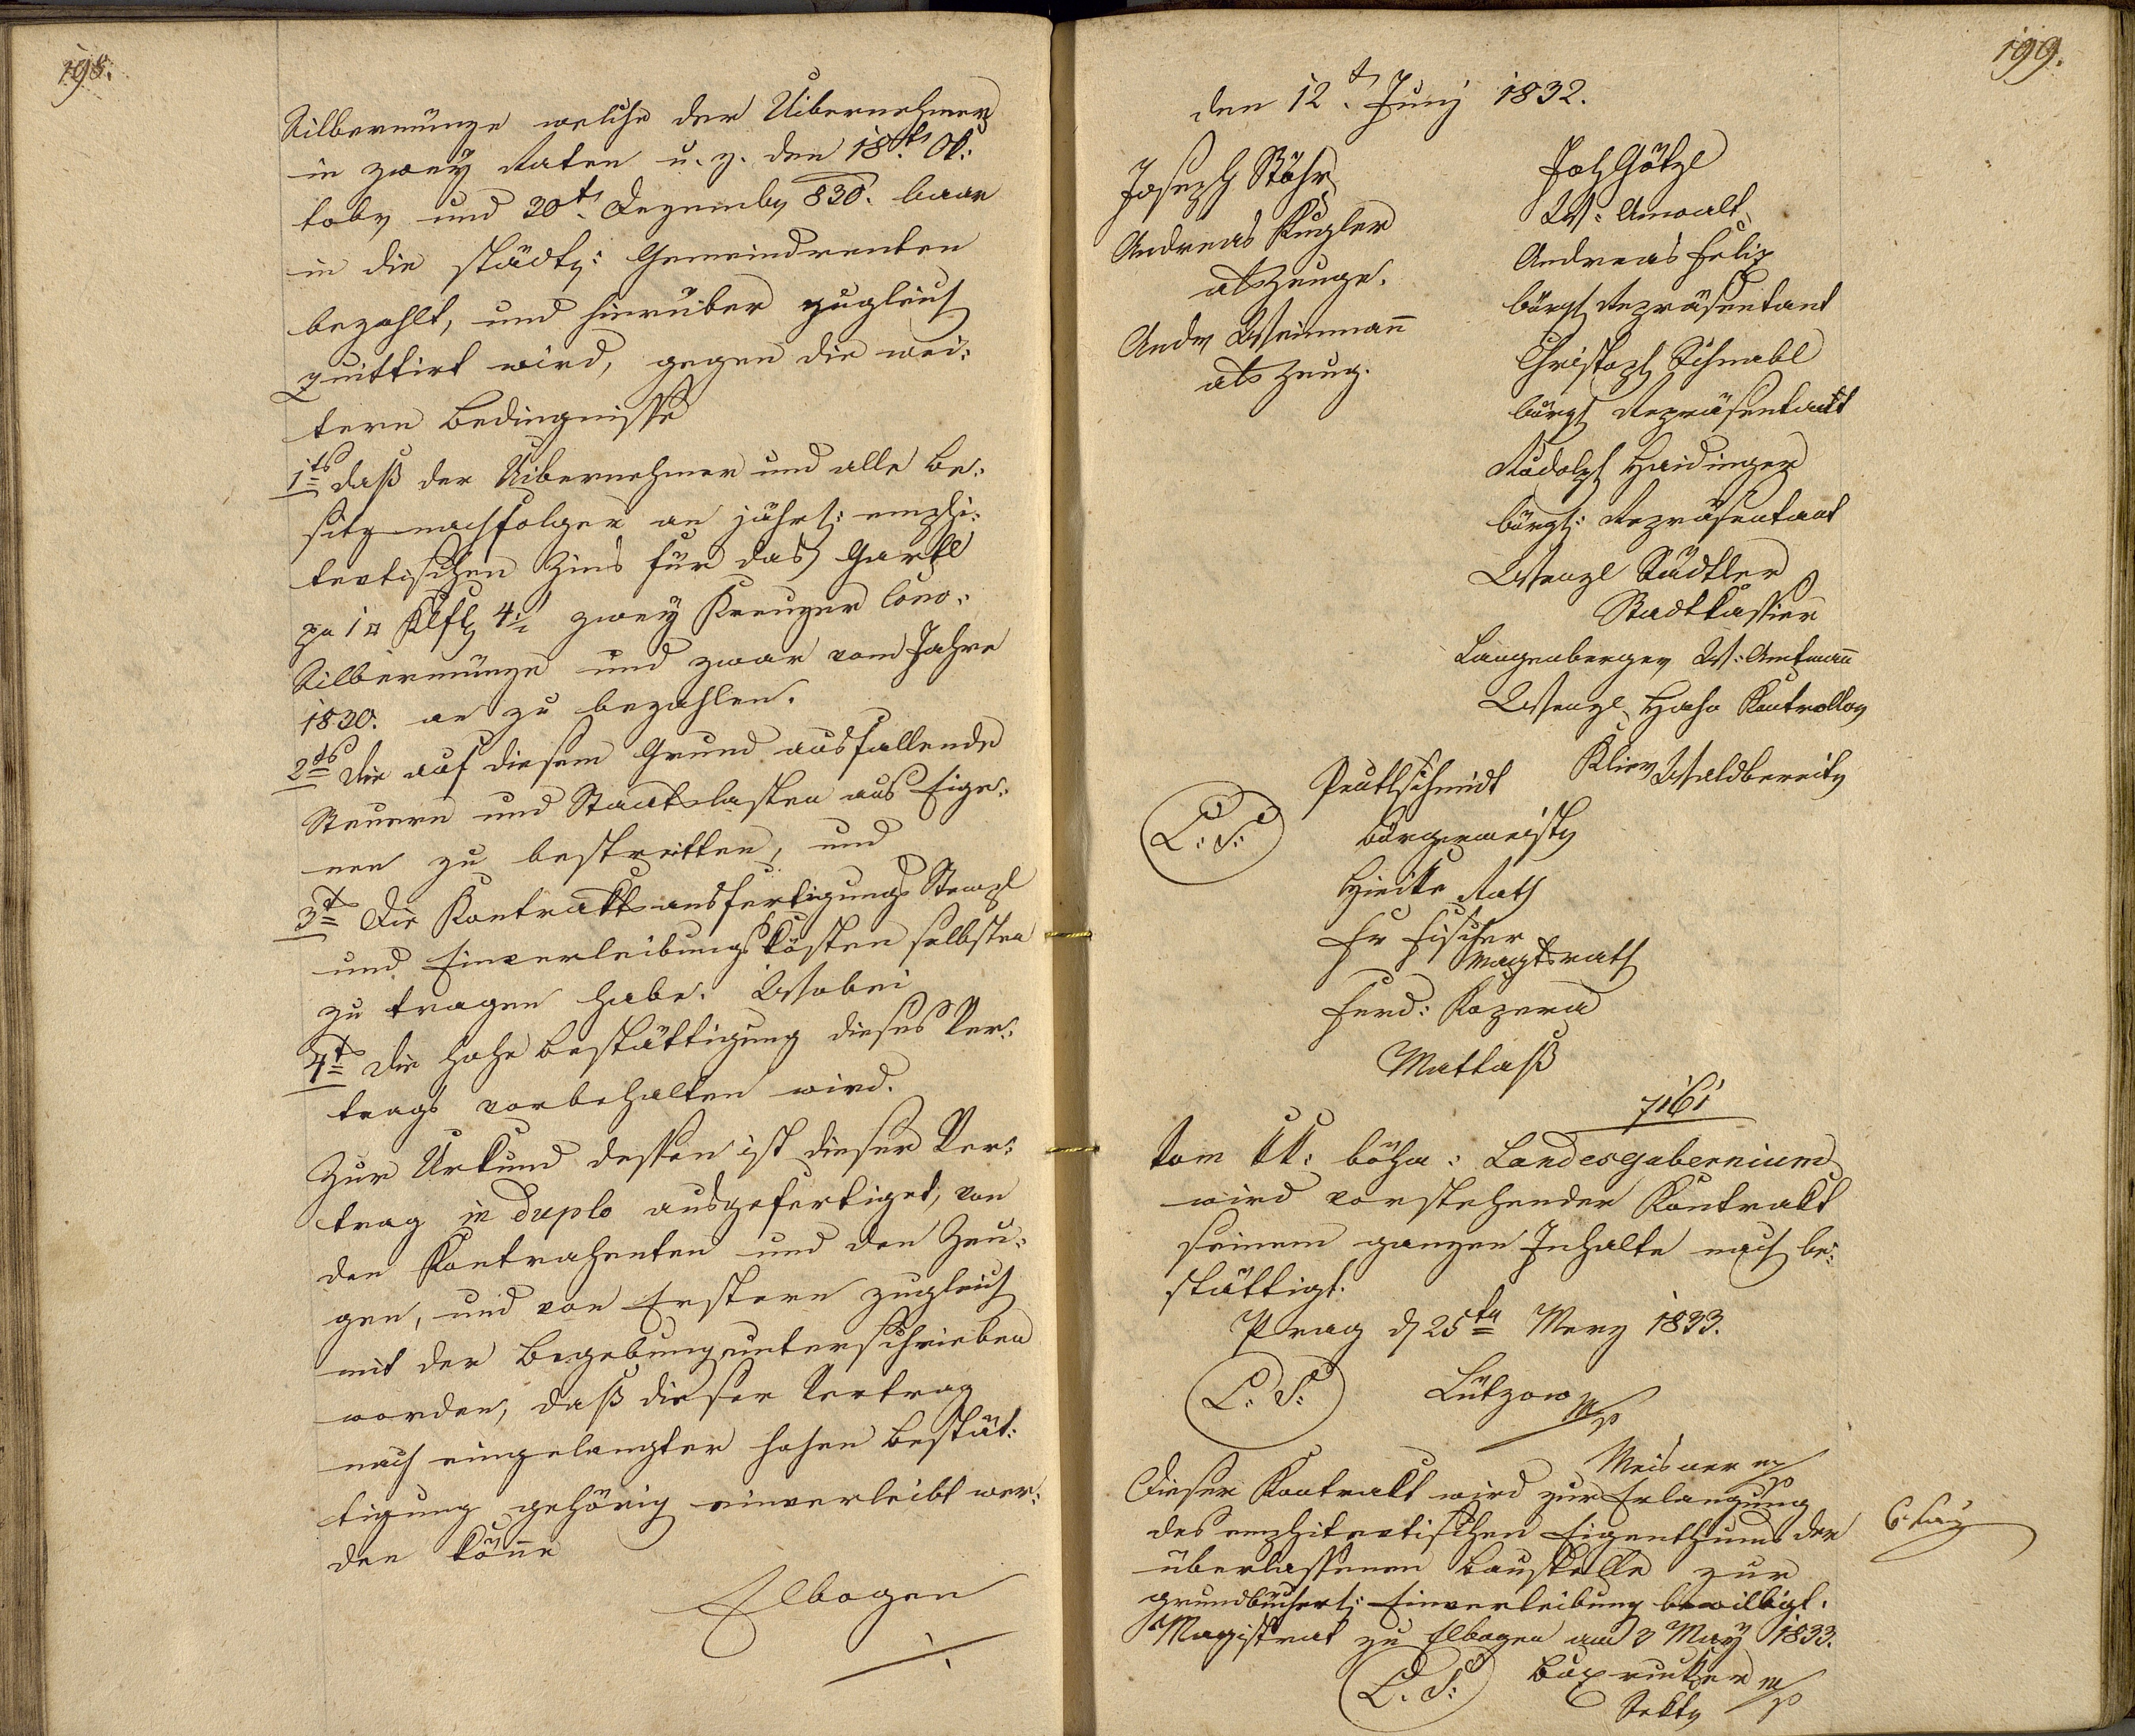 198.
Silbermünze welche der Uibernehmer
in zwey Raten u. z. den 18t. Ok:
tober und 30t. Dezember 830. baar
in die städt: Gemeindrenten
bezahlt, und hierüber zugleich
quittirt wird, gegen die wei:
tern Bedingnisse
1ts daß der Uibernehmer und alle Be:
sitznachfolger an jährl: emphi:
teutischen Zins für das Gartl
zu 1 □ Klft 4½ zwey Kreuzer Conv:
Silbermünze und zwar vom Jahre
1830. an zu bezahlen.
2ts die auf diesem Grund ausfallende
Steuern und Staatslasten aus Eige:
nen zu bestreitten, und
3t Die Kontraktsausfertigungs Stempl
und Einverleibungskösten selbsten
zu tragen habe. Wobei
4t die hohe Bestättigung dieses Ver:
trags vorbehalten wird.
Zur Urkund dessen ist dieser Ver:
trag in duplo ausgefertiget, von
den Kontrahenten und den Zeu:
gen, und von Erstern zugleich
mit der Begebung unterschrieben
worden, daß dieser Vertrag
nach eingelangter hohen Bestät:
tigung gehörig einverleibt wer:
den könne
Elbogen
199.
den 12t. Juny 1832.
Joseph Stöhr
Andreas Kugler
als Zeuge.
Andr Weinmann
als Zeug.
Joh Götzl
W: Anwalt
Andreas Felix
bürgl Repräsentant
Christoph Schnabl
bürgl Repräsentant
Rudolph Haidinger
bürgl: Repräsentant
Wenzl Städtler
Stadtkassier
Langenberger W: Amtmann
Wenzl Hahn Kontrollor
Klier Waldbereiter
Prutlschmidt
L: S:
Bürgermeister
Hieke Rath
Fr Fischer
Magtsrath
Ferd: Kozera
Mattaß
7161
Vom kk: böhm: Landesgubernium
wird vorstehender Kontrakt
seinem ganzen Inhalte nach be:
stättigt.
Prag d 25ten Merz 1833.
L. S: Lützow m/p
Meisner m/p
Dieser Kontrakt wird zur Erlangung
des emphiteutischen Eigenthums der
überlassenen Baustelle zur
grundbücherl: Einverleibung bewilligt.
Magistrat zu Elbogen am 3 May 1833.
L. S: m/p
Sektr